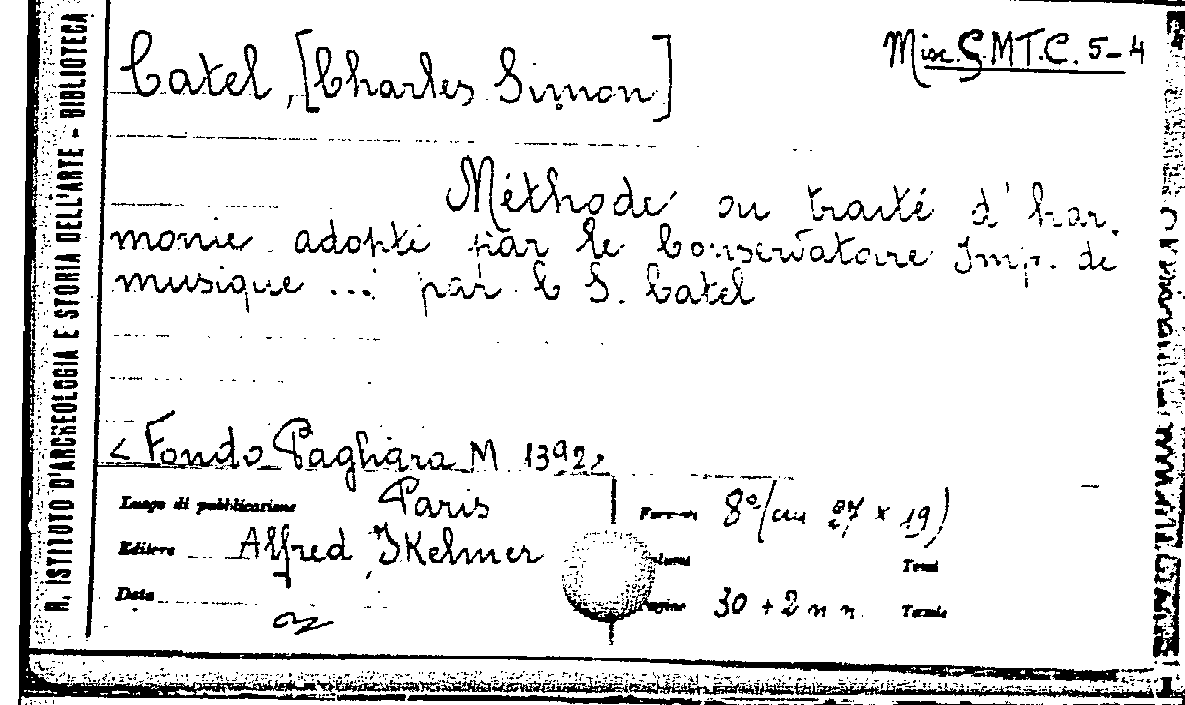 R. ISTITUTO D'ARCHEOLOGIA E STORIA DELL'ARTE - BIBLIOTECA
Misc. S.M.T.C. 5-4
Catel, [Charles Simon]
Méthode ou traité d'har.
monie adopté par le Conservatoire Imp. de
musique ... par C S. Catel
< Fondo Pagliara M 1392>
Luogo di pubblicazione Paris
Editore Alfred Ikelmer
Data
Formato 8°(cm 27 x 19)
Volumi Tomi
Pagine 30 + 2 n n. Tavole